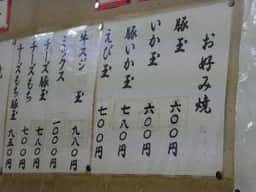 お好み焼
豚玉 六〇〇円
いか玉 六〇〇円
豚いか玉 七八〇円
えび玉 七〇〇円
牛スジ玉 九八〇円
ミックス 一〇〇〇円
チーズ豚玉 七八〇円
チーズもち 七〇〇円
チーズもち豚玉 九五〇円